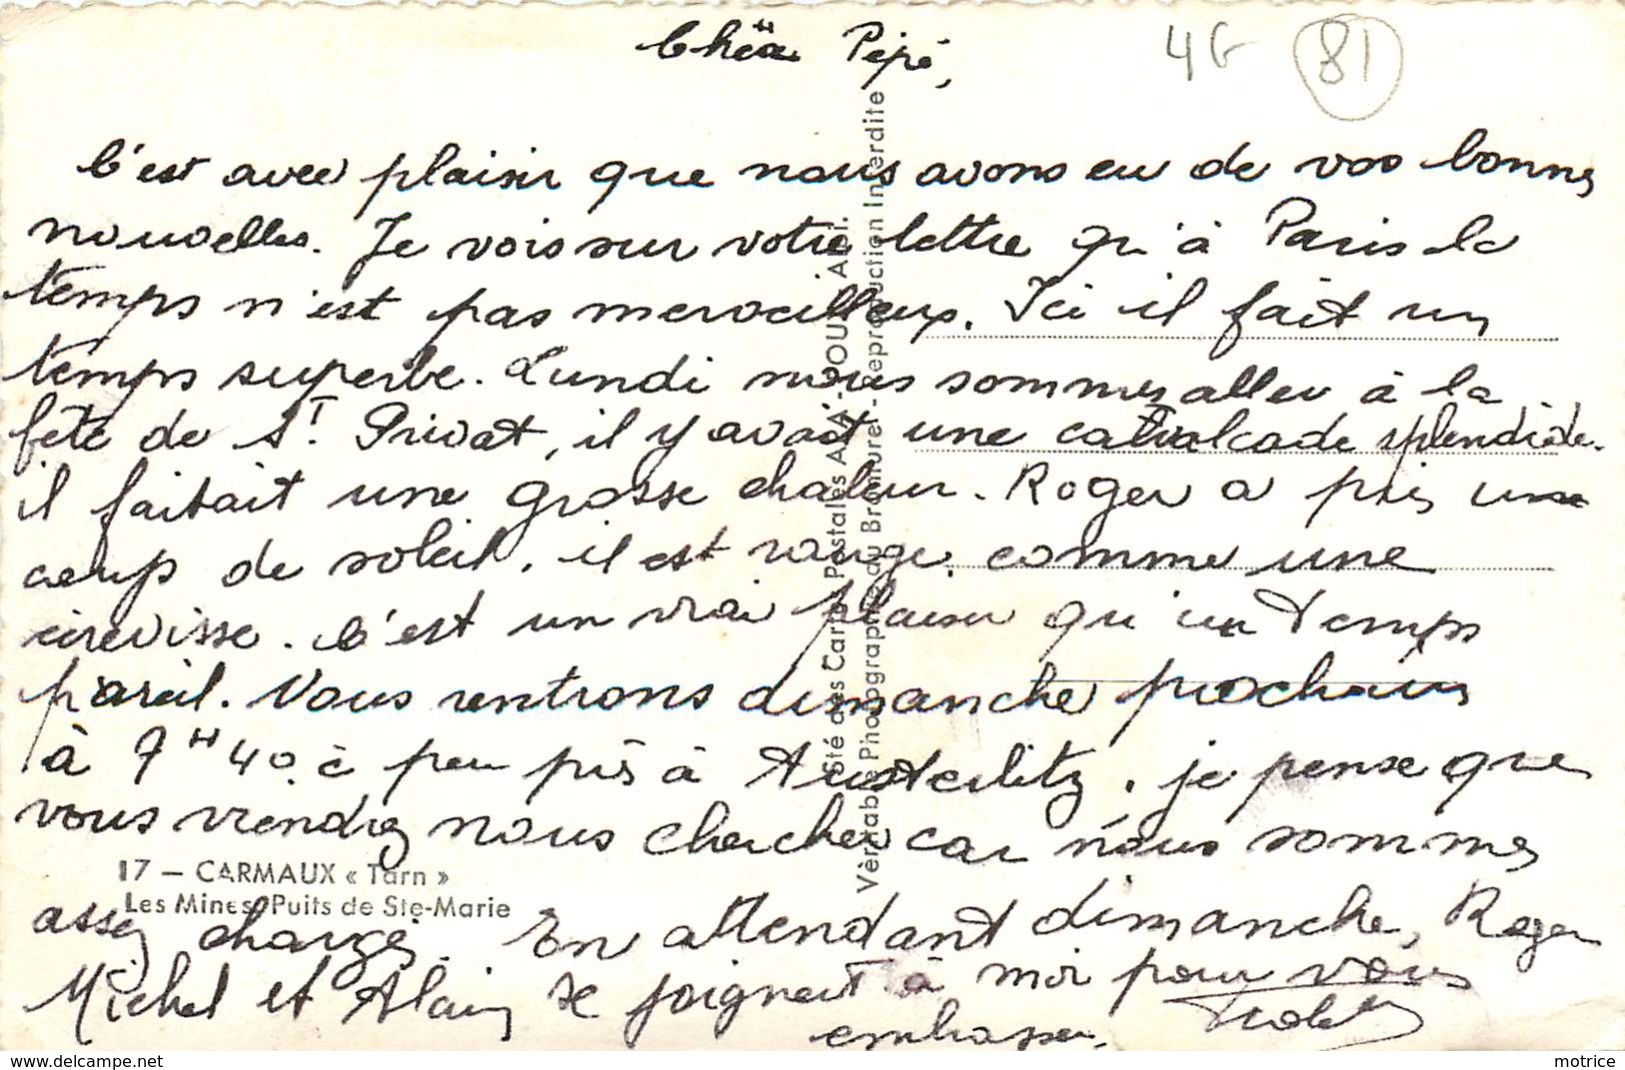 Cher Pépé,
4G 81
C'est avec plaisir que nous avons eu de vos bonnes
nouvelles. Je vois sur votre lettre qu'à Paris le
temps n'est pas merveilleux. Ici il fait un
temps superbe. Lundi nous sommes aller à la
fête de St. Privat, il y avait une cavalcade splendide.
il faisait une grosse chaleur. Roger a pris un
coup de soleil, il est rouge comme une
écrevisse. C'est un vrai plaisir qu'un temps
pareil. Nous rentrons dimanche prochain
à 7H40 à peu près à Austerlitz. je pense que
vous viendrez nous chercher car nous sommes
assez chargés. En attendant dimanche, Roger
Michel et Alain se joignent à moi pour vous
embrasser.
17 — CARMAUX « Tarn »
Les Mines, Puits de Ste-Marie
Sté des Cartes Postales A
Véritable Photographie au Bromure - Reproduction Interdite
www.delcampe.net
motrice